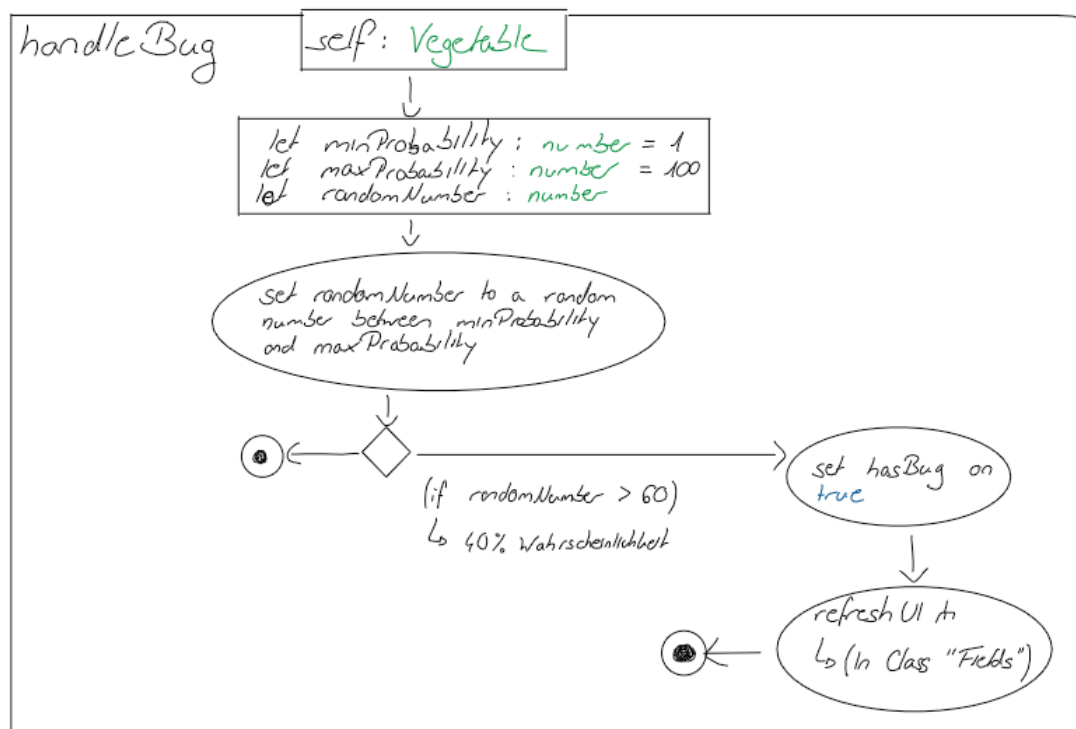 handleBug
self: Vegetable
let minProbability : number = 1
let maxProbability : number = 100
let randomNumber : number
set randomNumber to a random
number between minProbability
and maxProbability
(if randomNumber > 60)
↳ 40% Wahrscheinlichkeit
set hasBug on
true
refresh UI
↳ (In Class "Fields")